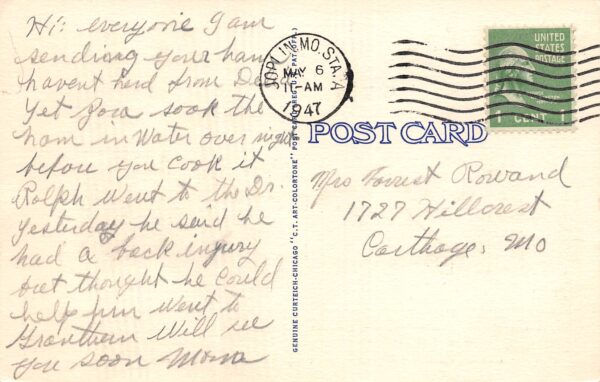 Hi: everyone I am
sending your ham
havent herd from De
Yet Zora soak the
ham in Water over night
before you cook it
Ralph Went to the Dr.
yesterday he said he
had a back injury
but thought he could
help him Went to
Will see
you soon Moma
JOPLIN, MO. STA. A
MAY 6
11-AM
1947
UNITED
STATES
POSTAGE
1 CENT 1
POST CARD
Mrs Forrest Rowand
1727 Hillcrest
Carthage, Mo
GENUINE CURTEICH-CHICAGO "C.T. ART-COLORTONE" POST CARD (REG. U.S. PAT. OFF.)